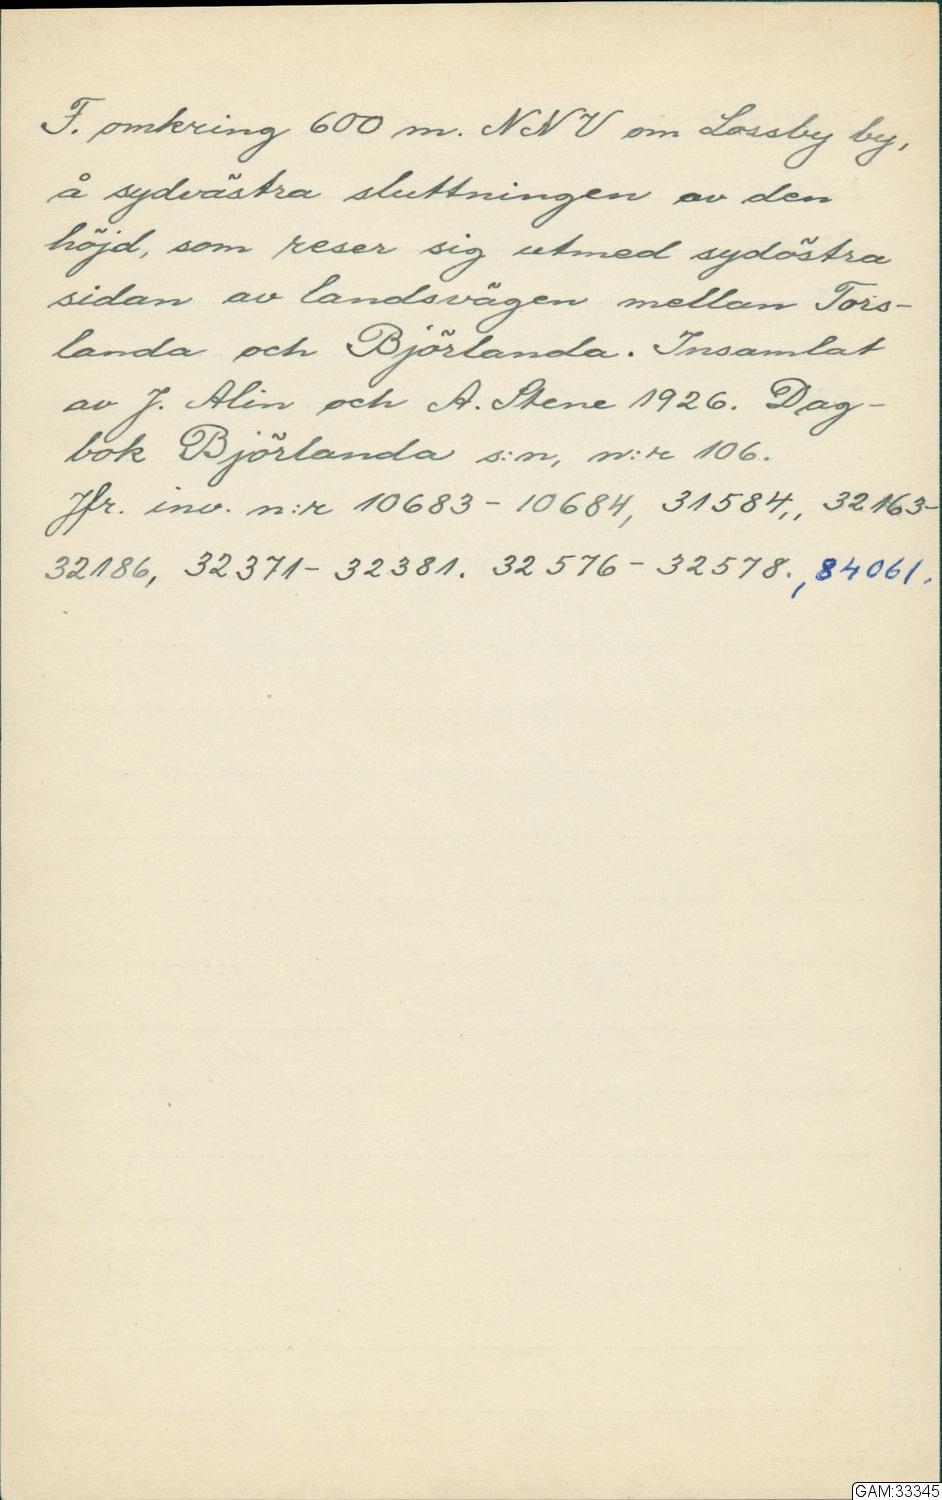 F. omkring 600 m. NNV om Lossby by,
å sydvästra sluttningen av den
höjd, som reser sig utmed sydöstra
sidan av landsvägen mellan Tors-
landa och Björlanda. Insamlat
av J. Alin och A. Stene 1926. Dag-
bok Björlanda s:n, n:r 106.
Jfr. inv. n:r 10683-10684, 31584,, 32163-
32186, 32371-32381. 32576-32578. , 84061.
GAM:33345